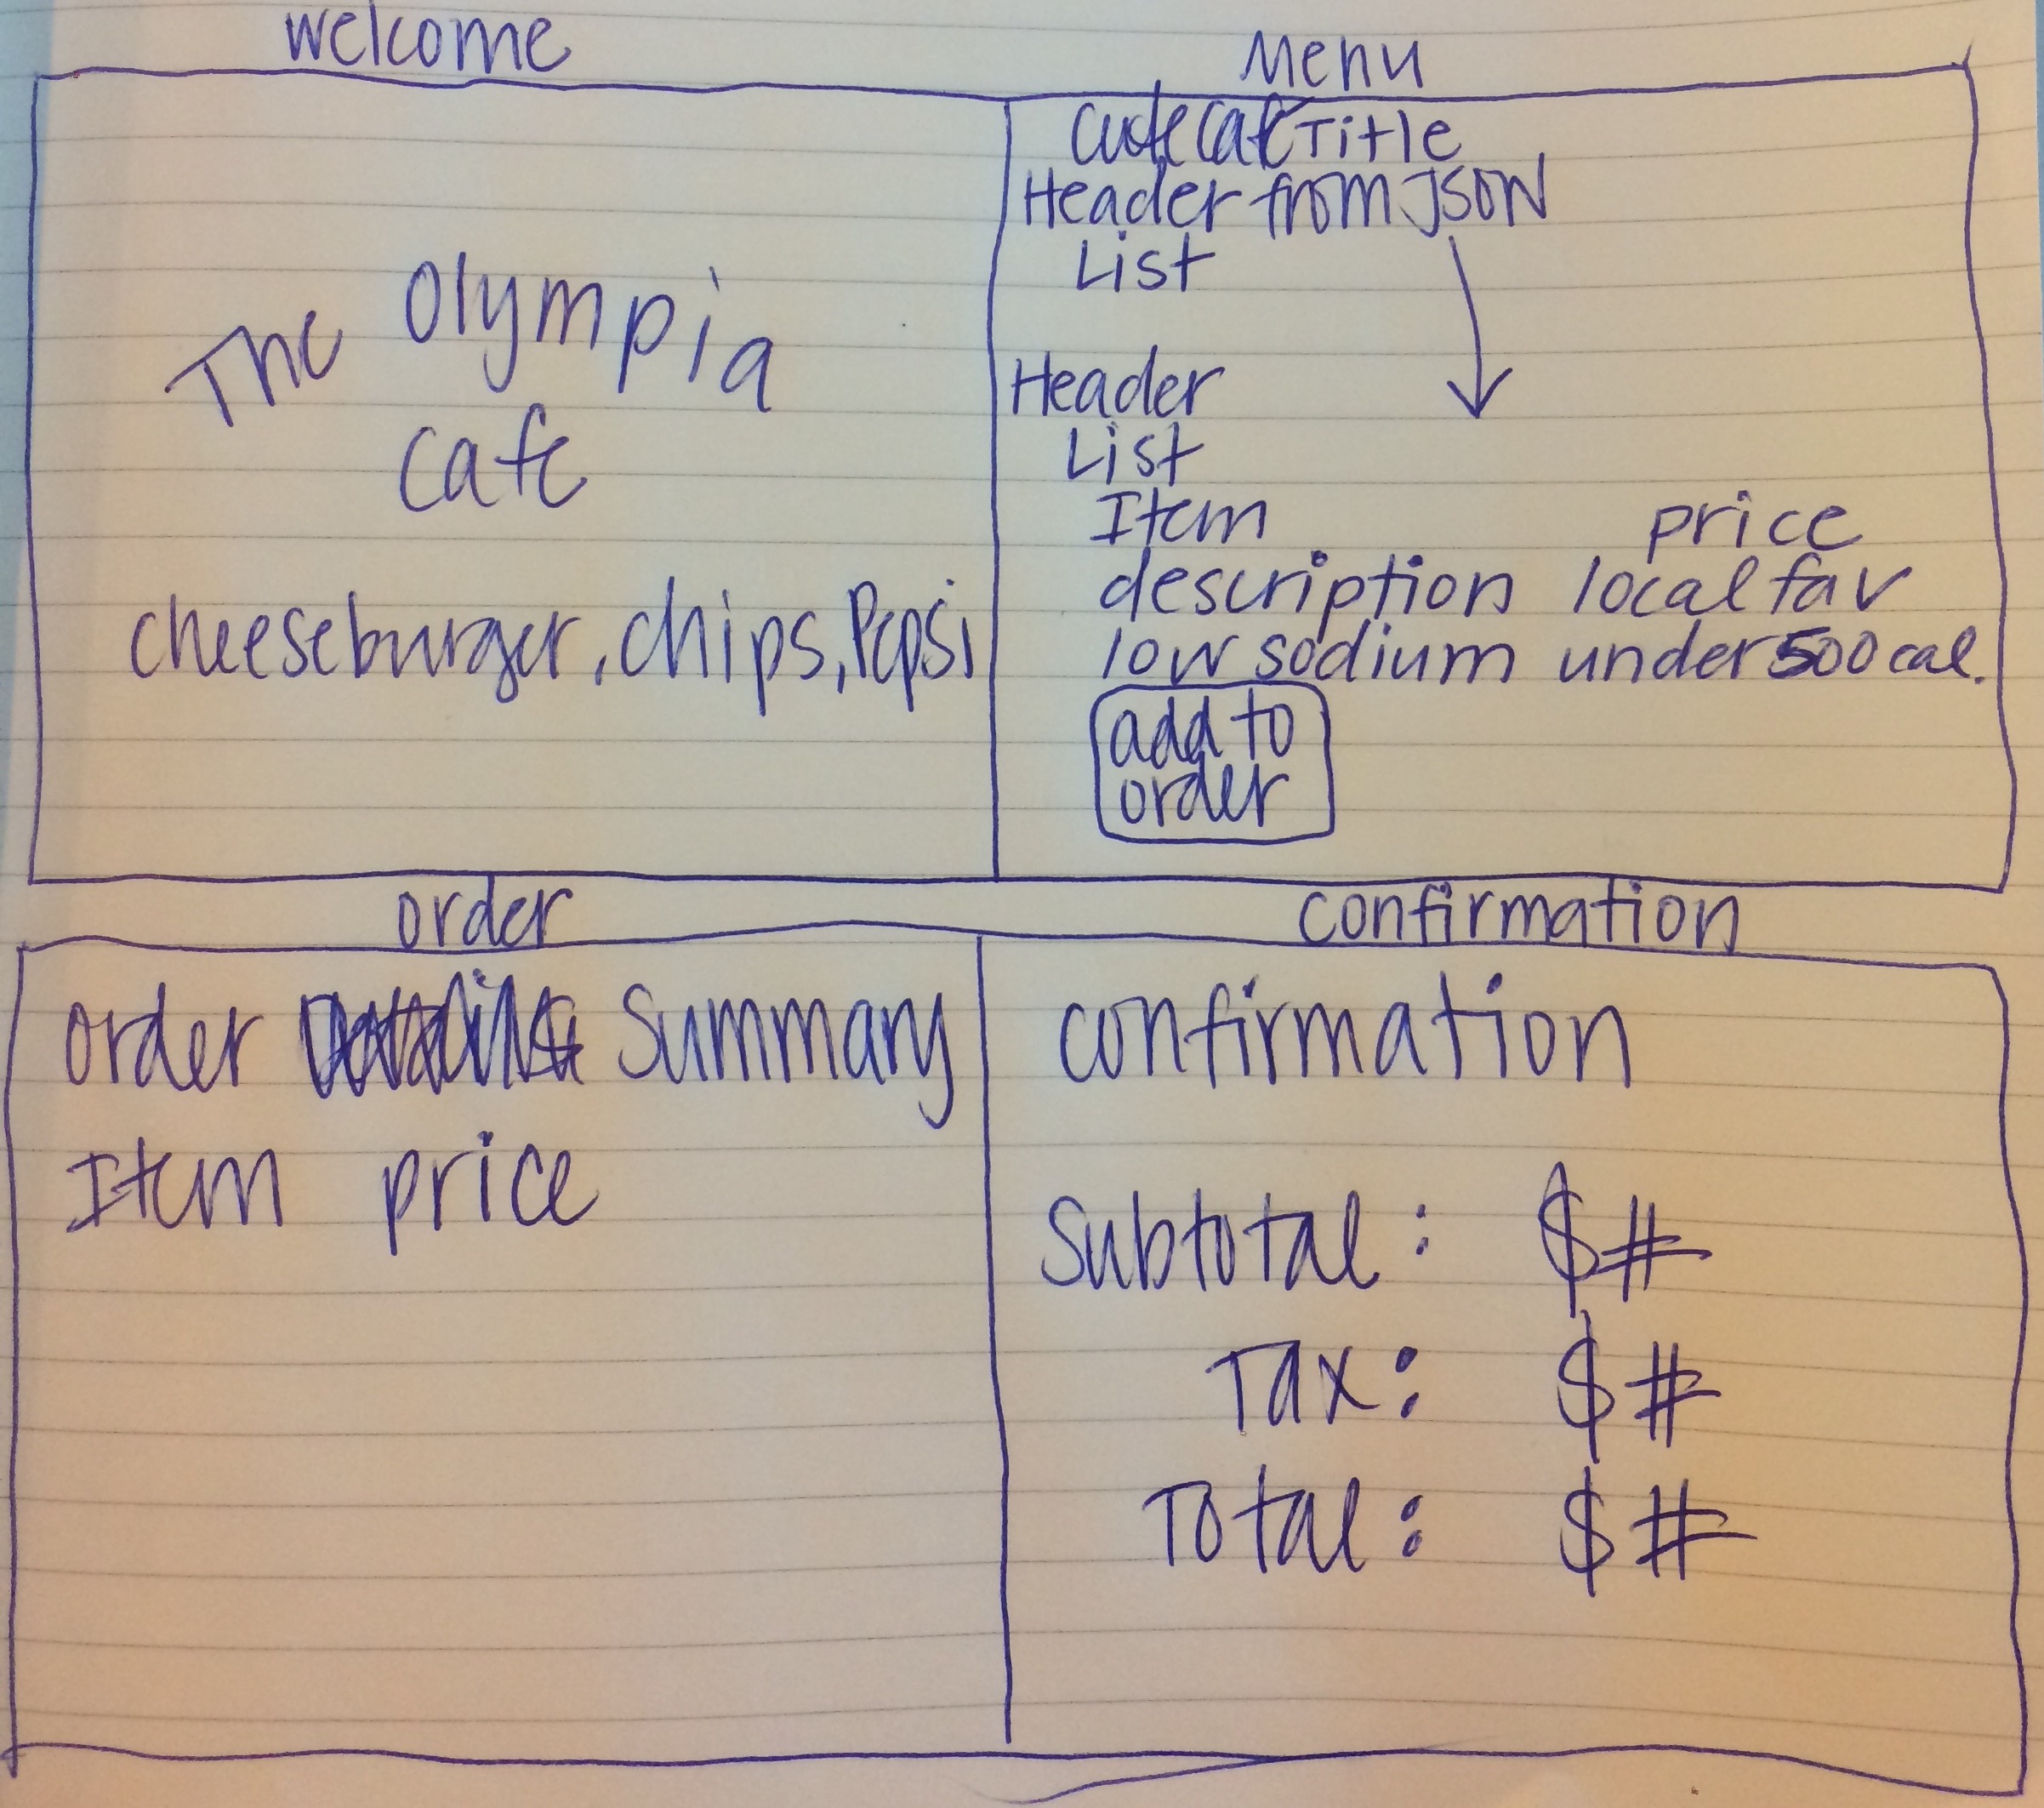 welcome
The Olympia
cafe
cheeseburger, chips, Pepsi
Menu
Title
Header from JSON
List
Header
List
Item price
description local fav
low sodium under 500 cal.
add to
order
order
order Summary
Item price
confirmation
confirmation
Subtotal: $#
Tax: $#
Total: $#